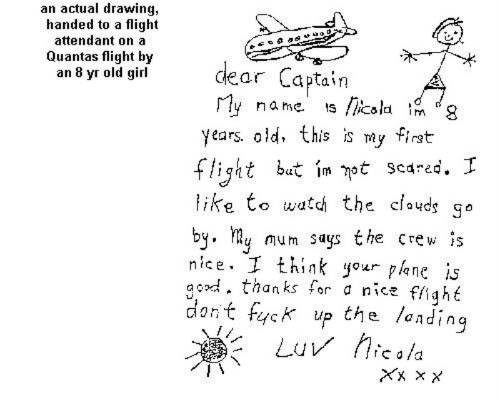 an actual drawing,
handed to a flight
attendant on a
Quantas flight by
an 8 yr old girl
dear Captain
My name is Nicola im 8
years. old, this is my first
flight but im not scared. I
like to watch the clouds go
by. My mum says the crew is
nice. I think your plane is
good. thanks for a nice flight
don't fuck up the landing
Luv Nicola
xxxx